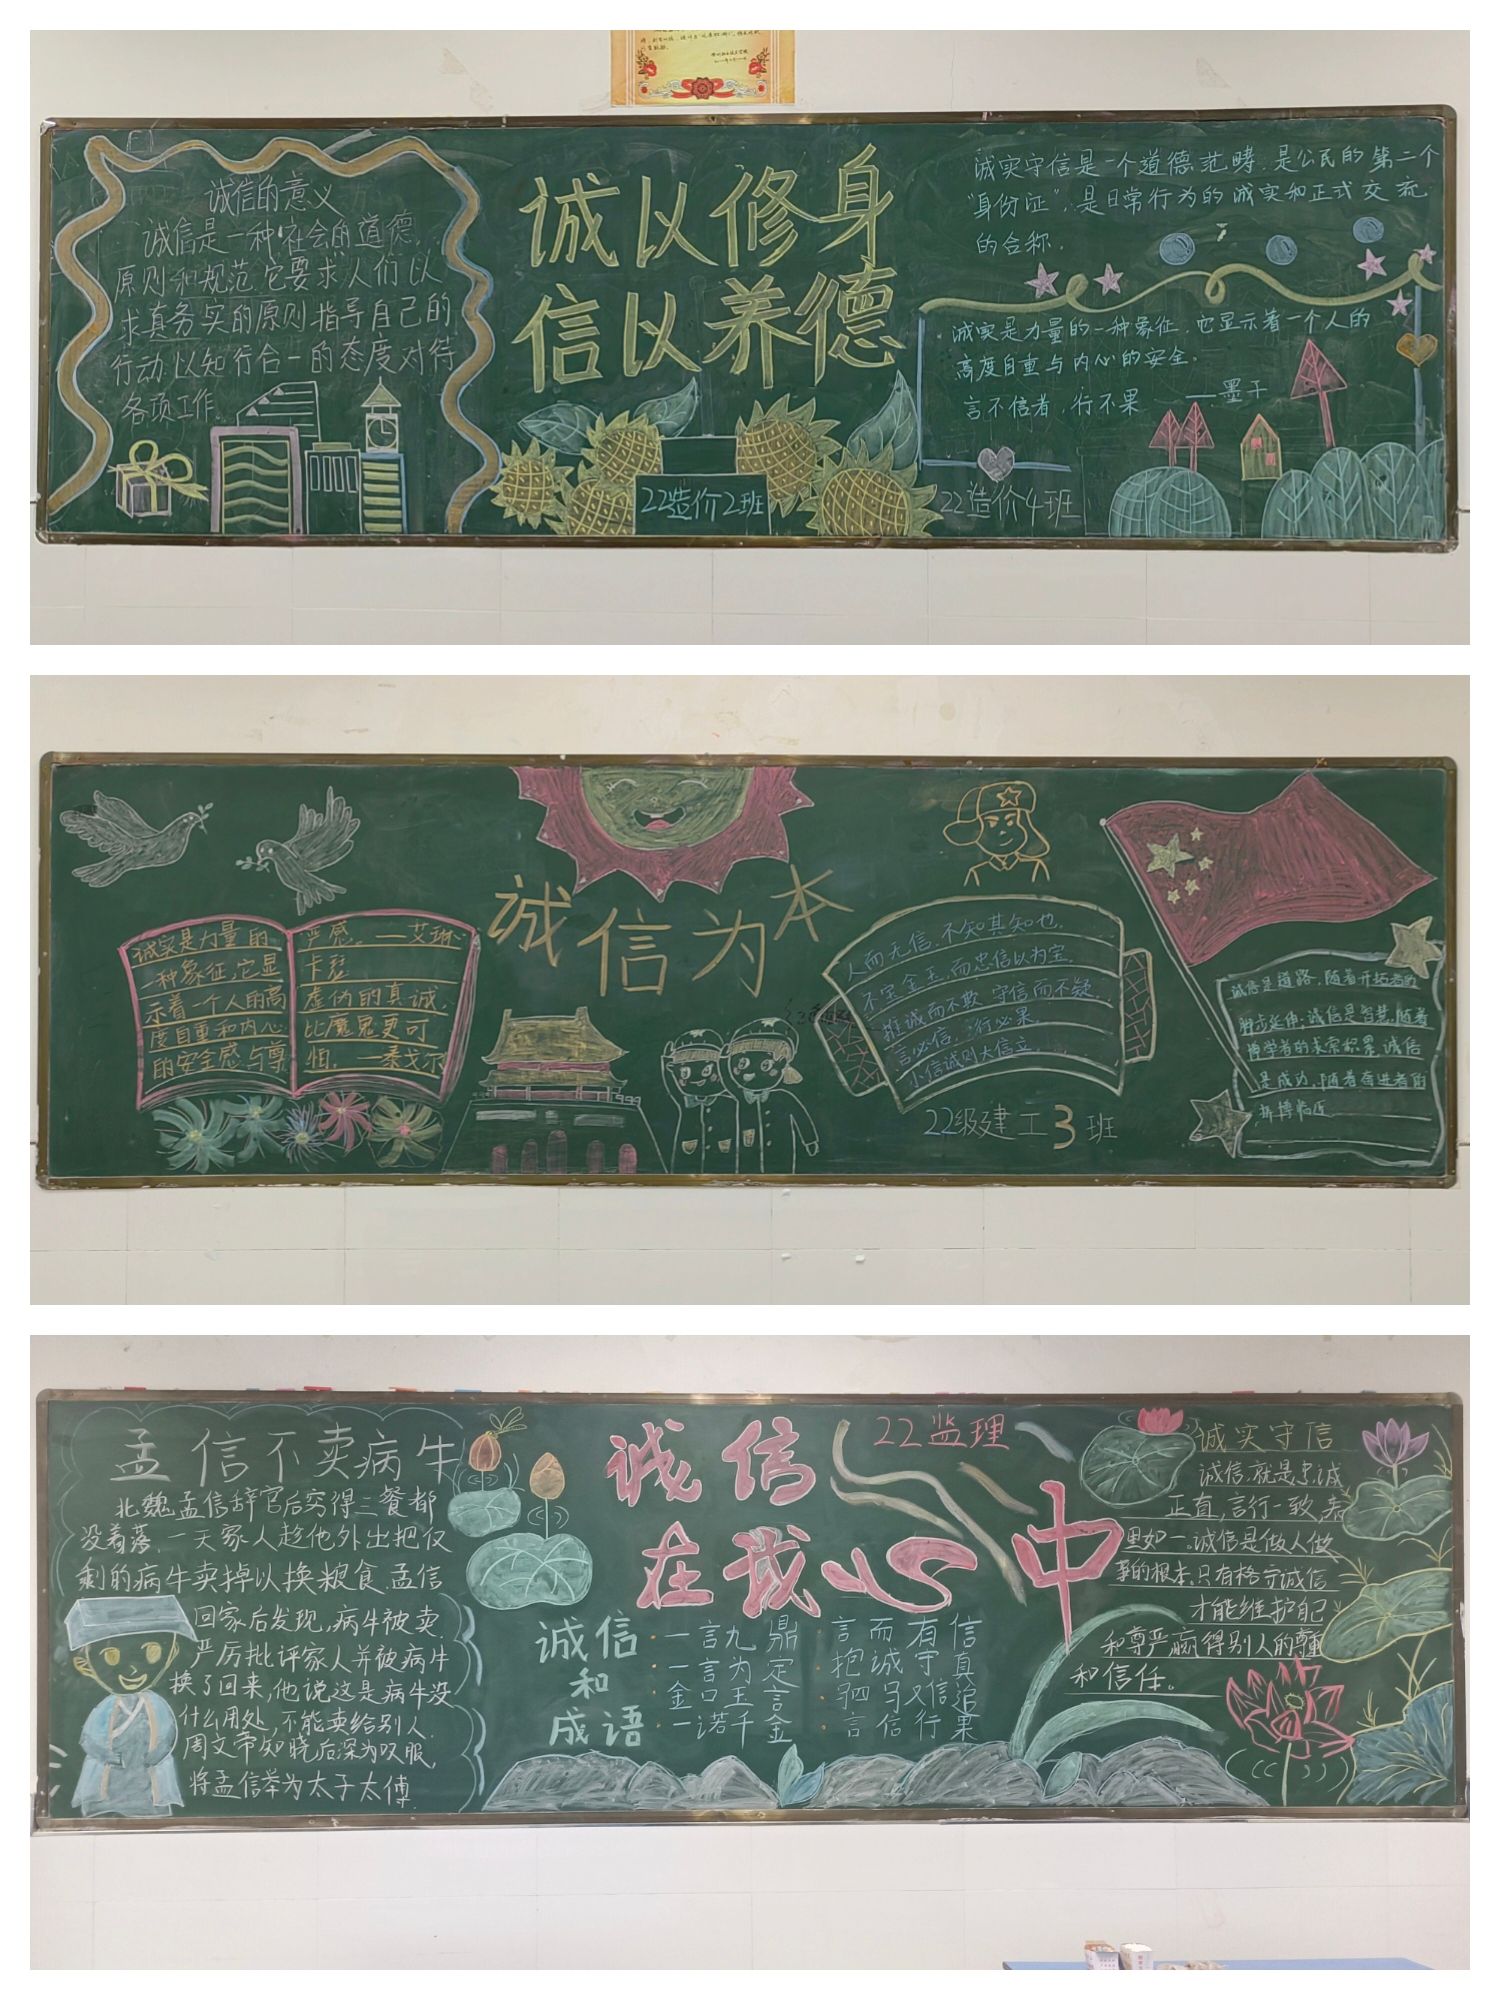 诚信的意义
诚信是一种社会的道德
原则和规范.它要求人们以
求真务实的原则指导自己的
行动.以知行合一的态度对待
各项工作.
诚以修身
信以养德
22造价2班
诚实守信是一个道德范畴.是公民的第二个
“身份证”,是日常行为的诚实和正式交流
的合称.
诚实是力量的一种象征,它显示着一个人的
高度自重与内心的安全。
言不信者,行不果 ——墨子
22造价4班
诚实是力量的
一种象征,它显
示着一个人的高
度自重和内心
的安全感与尊
严感。—艾琳·
卡瑟
虚伪的真诚,
比魔鬼更可
怕. —泰戈尔
诚信为本
人而无信,不知其知也.
不宝金玉,而忠信以为宝.
推诚而不欺 守信而不疑.
言必信,行必果.
小信诚则大信立.
22级建工3班
诚信是道路,随着开拓者的
脚步延伸;诚信是智慧,随着
博学者的求索积累,诚信
是成功,随着奋进者的
拼搏临近.
孟信不卖病牛
北魏孟信辞官后穷得三餐都
没着落,一天家人趁他外出把仅
剩的病牛卖掉以换粮食.孟信
回家后发现,病牛被卖.
严厉批评家人并被病牛
换了回来,他说这是病牛没
什么用处,不能卖给别人.
周文帝知晓后深为叹服,
将孟信举为太子太傅.
诚信
在我心中
22监理
诚信
和
成语
一言九鼎
一言为定
金口玉言
一诺千金
言而有信
抱诚守真
驷马难追
言信行果
诚实守信
诚信,就是忠诚
正直,言行一致,表
里如一。诚信是做人做
事的根本,只有格守诚信
才能维护自己
和尊严赢得别人的尊重
和信任。